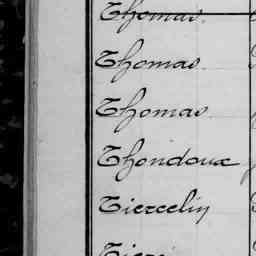 Thomas
Thomas
Thomas
Thondoux
Tiercelin